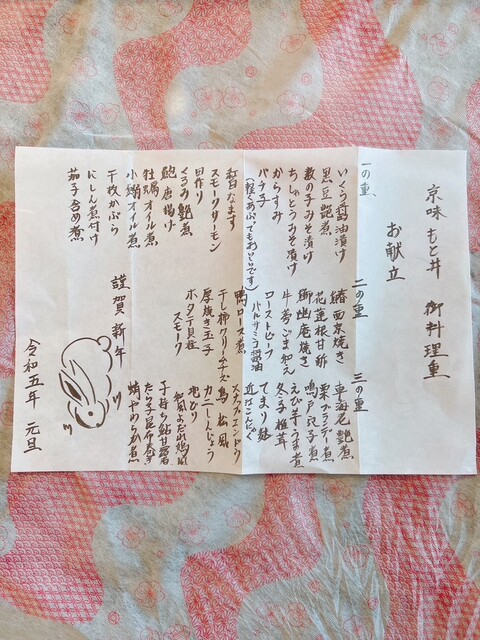 京味 もと井 御料理重
お献立
一の重
いくら醤油漬け
黒豆艶煮
数の子みそ漬け
ちしゃとうみそ漬け
からすみ
バチ子
(軽くあぶってもおいしいです)
紅白なます
スモークサーモン
田作り
くるみ艶煮
鮑唐揚げ
牡蠣オイル煮
小鯛オイル煮
千枚かぶら
にしん煮付け
茄子含め煮
二の重
鰆西京焼き
花蓮根甘酢
鰤幽庵焼き
牛蒡ごま和え
ローストビーフ
バルサミコ醤油
鴨ロース煮
干し柿クリームチーズ
厚焼き玉子
ホタテ貝柱
スモーク
三の重
車海老艶煮
栗ブランデー煮
鳴戸烏子煮
えび芋うま煮
冬子椎茸
てまり麸
近江こんにゃく
スナップエンドウ
鳥松風
カニしんじょう
地どり
和風みだれ焼
子持ち鮎甘露煮
たら子昆布巻き
蛸やわらか煮
謹賀新年
令和五年 元旦